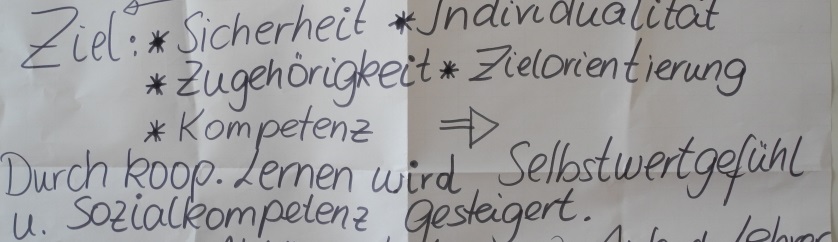 Ziel: * Sicherheit * Individualität
* Zugehörigkeit * Zielorientierung
* Kompetenz ⇒
Durch koop. Lernen wird Selbstwertgefühl
u. Sozialkompetenz gesteigert.